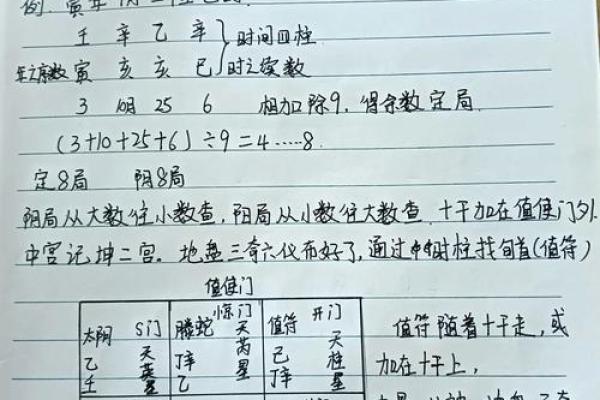 例. 寅年
壬 辛 乙 辛 时间四柱
年之序数 寅 亥 亥 巳 时之实数
3 10月 25 6 相加除9, 得余数定局
(3+10+25+6)÷9=4……8
定8局 阴8局
阴局从大数往小数查, 阳局从小数往大数查, 十干加在值使门外.
中宫记坤二宫。地盘三奇六仪布好了, 通过时柱找旬首(值符)
值使门
太阴 S门 螣蛇 惊门 值符 开门
乙 天英星 辛 天芮星 己 天柱星
壬 乙 辛
值符随着十干走, 或
加在十干上,